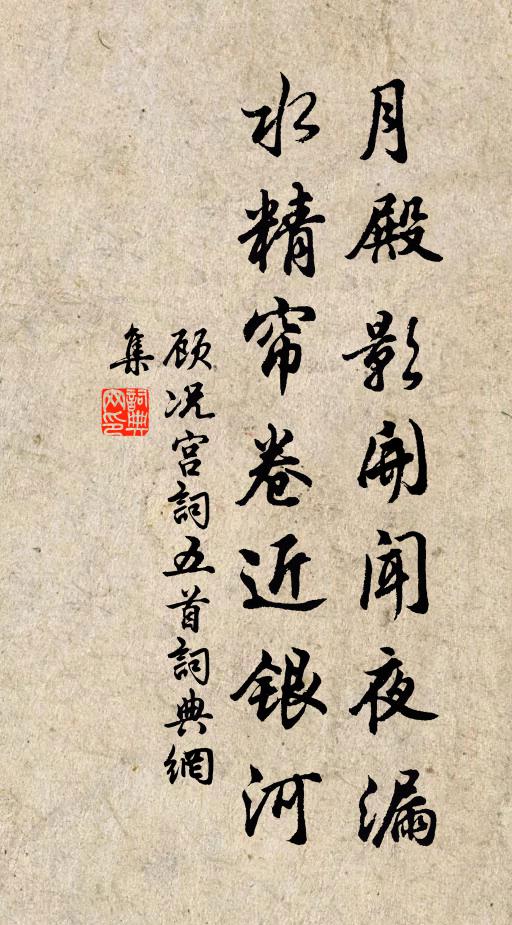 月殿影開聞夜漏
水精帘卷近銀河
顾况宫詞五首詞典網
集
詞典
网印